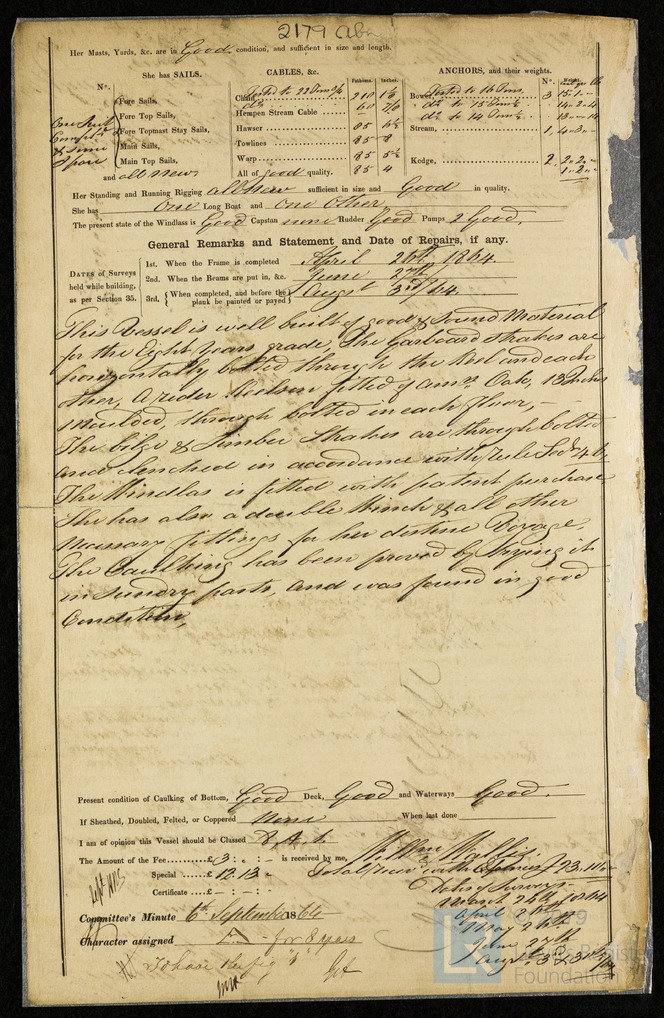 2179 Abn
Her Masts, Yards, &c. are in Good condition, and sufficient in size and length.
She has SAILS.
CABLES, &c.
ANCHORS, and their weights.
N°.
Fathoms. Inches.
N°. Weight.
Fore Sails,
Fore Top Sails,
Fore Topmast Stay Sails,
Main Sails,
Main Top Sails,
and all new
One Suit
Complete
& Some
Spare
Chain
Hempen Stream Cable
Hawser 85
Towlines 85 8
Warp 85 5½
All of good quality. 85 4
Bower, Tested to 16 Tons 3 15
do to 15 Tons 14 2 4
do to 14 Tons
Stream, 1
Kedge, 2
Her Standing and Running Rigging all New sufficient in size and Good in quality.
She has One Long Boat and one other
The present state of the Windlass is Good Capstan none Rudder Good Pumps 2 Good.
General Remarks and Statement and Date of Repairs, if any.
DATES of Surveys
held while building,
as per Section 35.
1st. When the Frame is completed April 26th 1864
2nd. When the Beams are put in, &c. June 27th
3rd. { When completed, and before the plank be painted or payed } Augst 3rd/64.
This Vessel is well built of good & Sound Material
for the Eight Years grade, The Garboard strakes are
horizontally bolted through the Keel and each
other, A rider Keelson fitted of Amn Oak, 13 Inches
moulded, through bolted in each floor,
The bilge & Limber Strakes are through bolted
and clenched in accordance with rule Sect 46
The Windlas is fitted with patent purchase
She has also a double Winch & all other
Necessary fittings for her destine Voyage.
The Caulking has been proved by trying it
in sundry parts, and was found in good
Condition,
Present condition of Caulking of Bottom, Good Deck, Good and Waterways Good.
If Sheathed, Doubled, Felted, or Coppered None When last done
I am of opinion this Vessel should be Classed 8 A 1.
The Amount of the Fee £ 3 : : - is received by me,
Special £ 12.13
Certificate £ - : - : -
Dates of Surveys
March 24th 1864
April 26th
May
June 27th
Augt 3 & 31st
Committee's Minute 6th September 1864
Character assigned for 8 years
Foundation